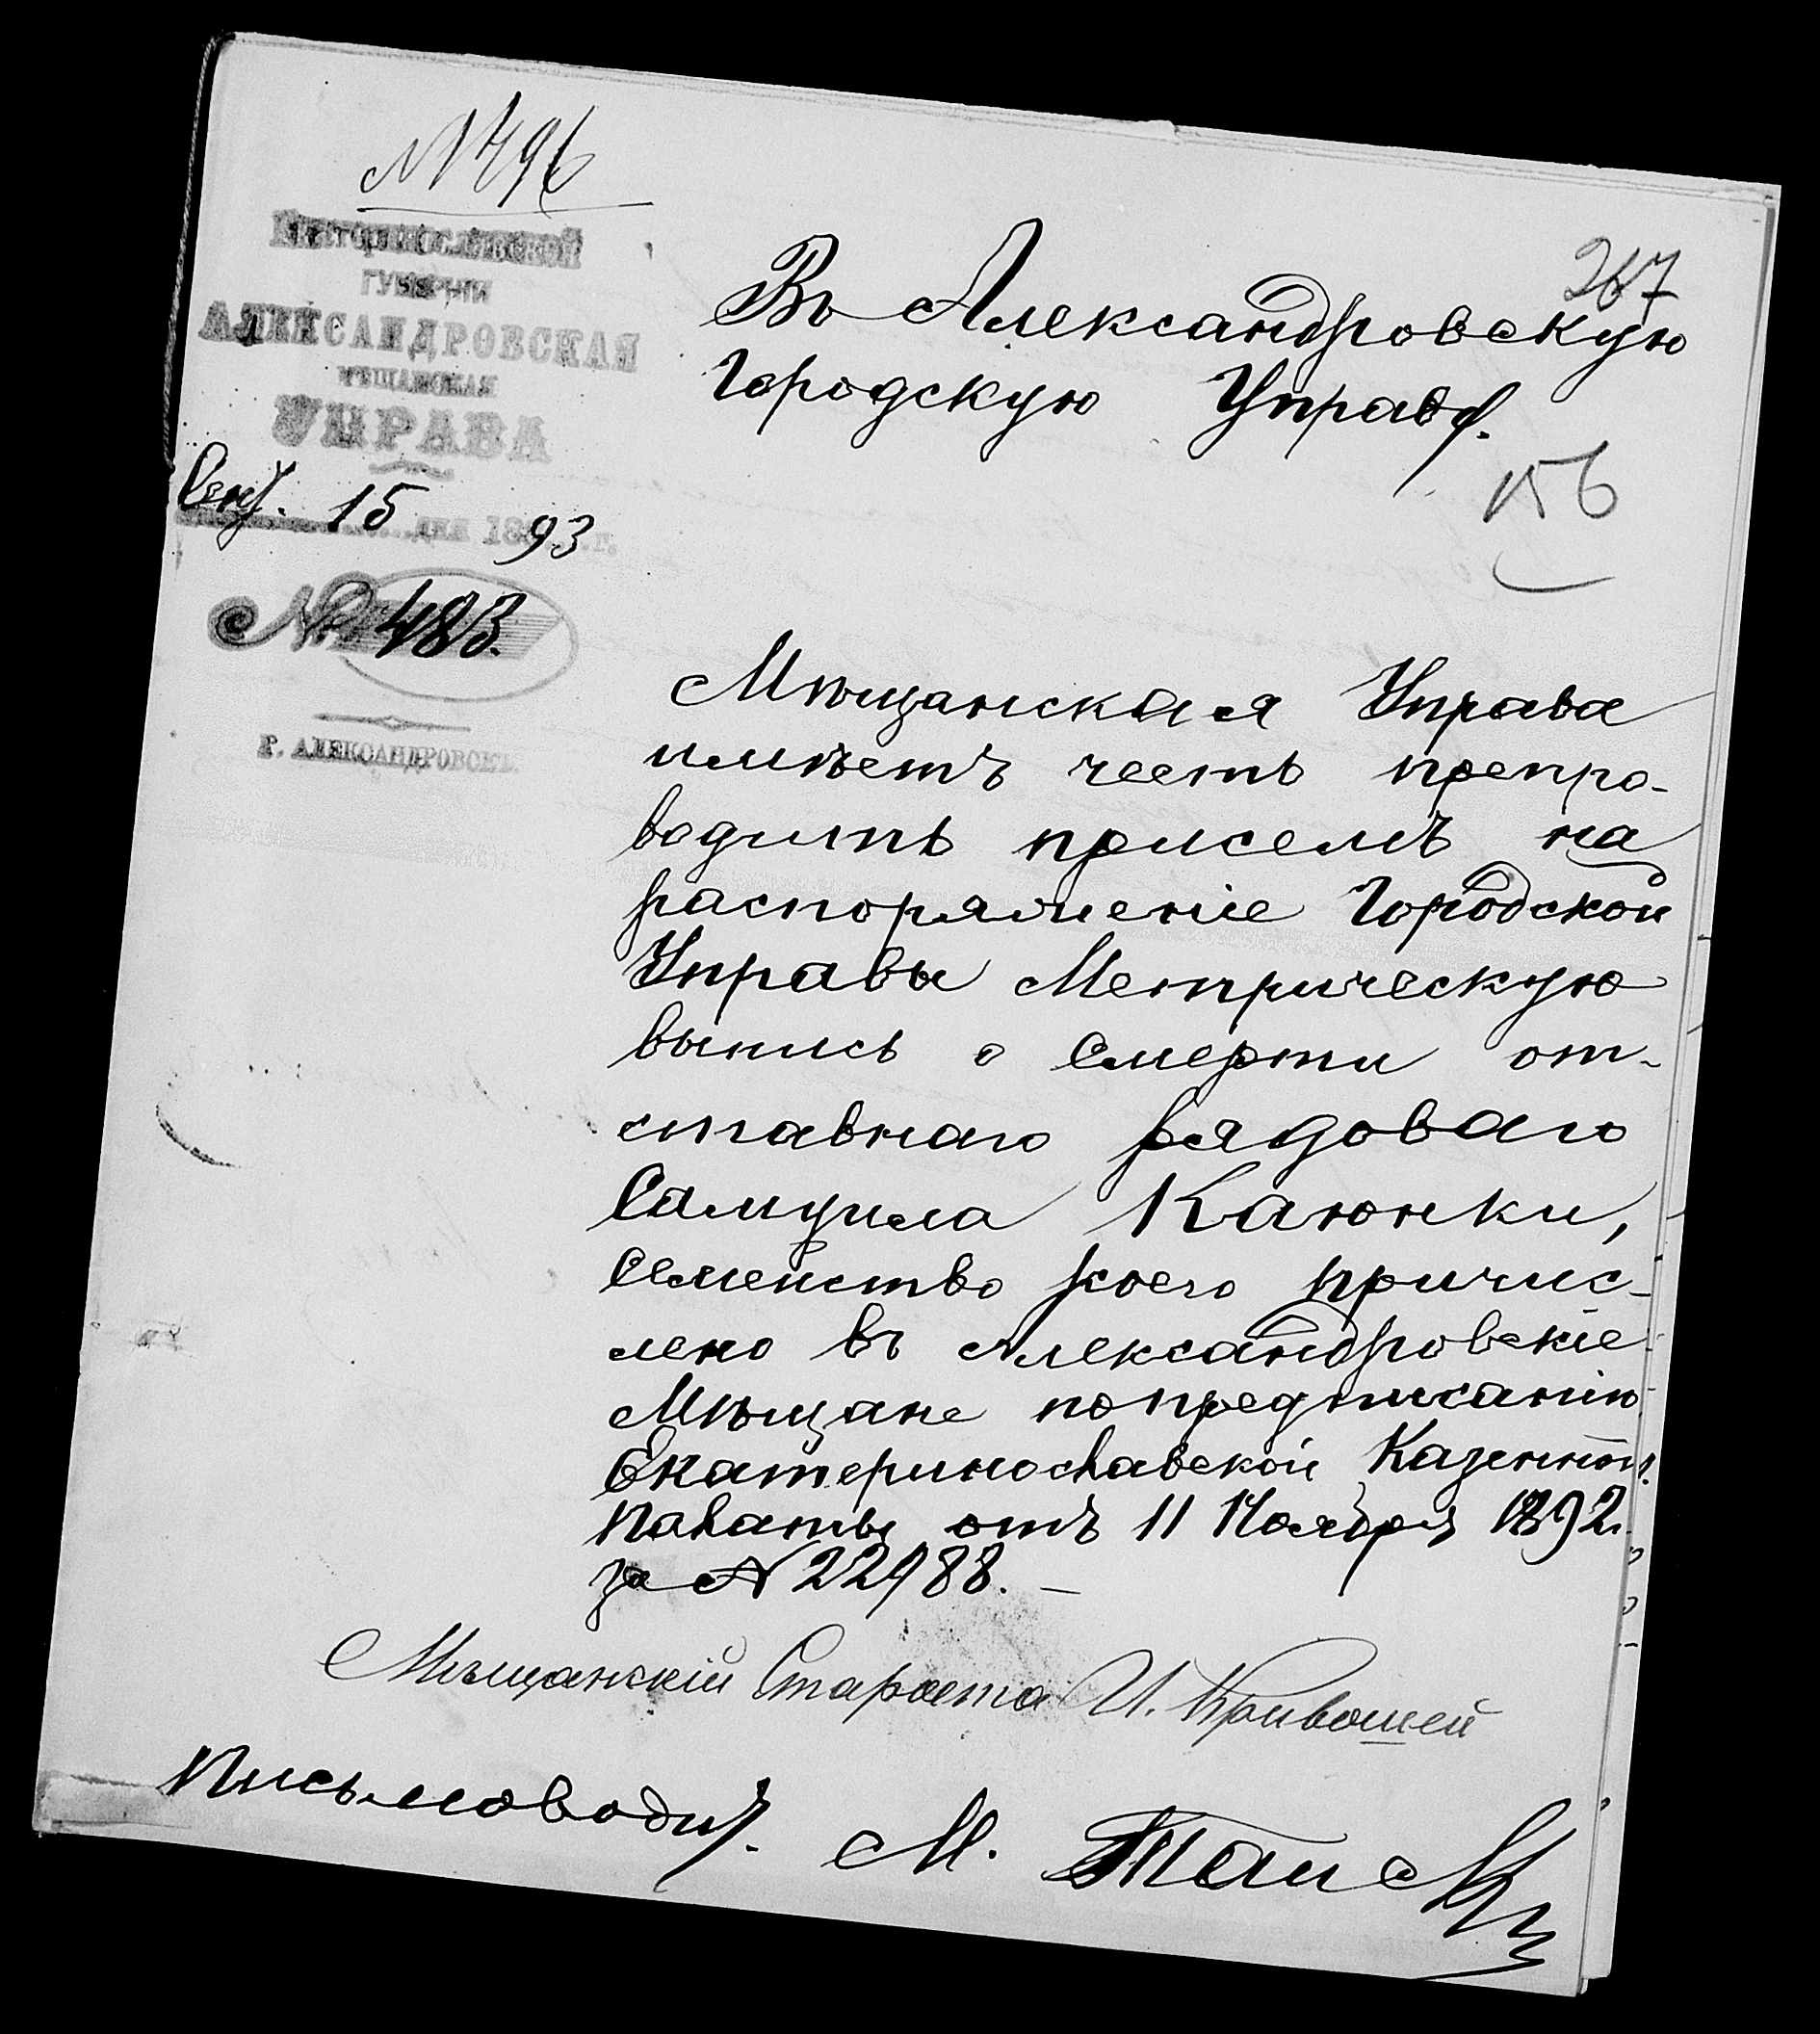 № 1496
267
Екатеринославской
ГУБЕРНІИ
АЛЕКСАНДРОВСКАЯ
МѢЩАНСКАЯ
УПРАВА
Сент. 15 дня 1893 г.
№ 483.
Г. АЛЕКСАНДРОВСКЪ.
Въ Александровскую
Городскую Управу.
156
Мѣщанская Управа
имѣетъ честь препро-
водить присемъ на
распоряженіе Городской
Управы Метрическую
выпись о смерти от-
ставнаго рядоваго
Самуила Каюнки,
семейство коего причис-
лено въ Александровскіе
Мѣщане по предписанію
Екатеринославской Казенной
Палаты отъ 11 Ноября 1892 г.
за № 22988. —
Мѣщанскій Староста И. Кривошей
Письмоводит. М.